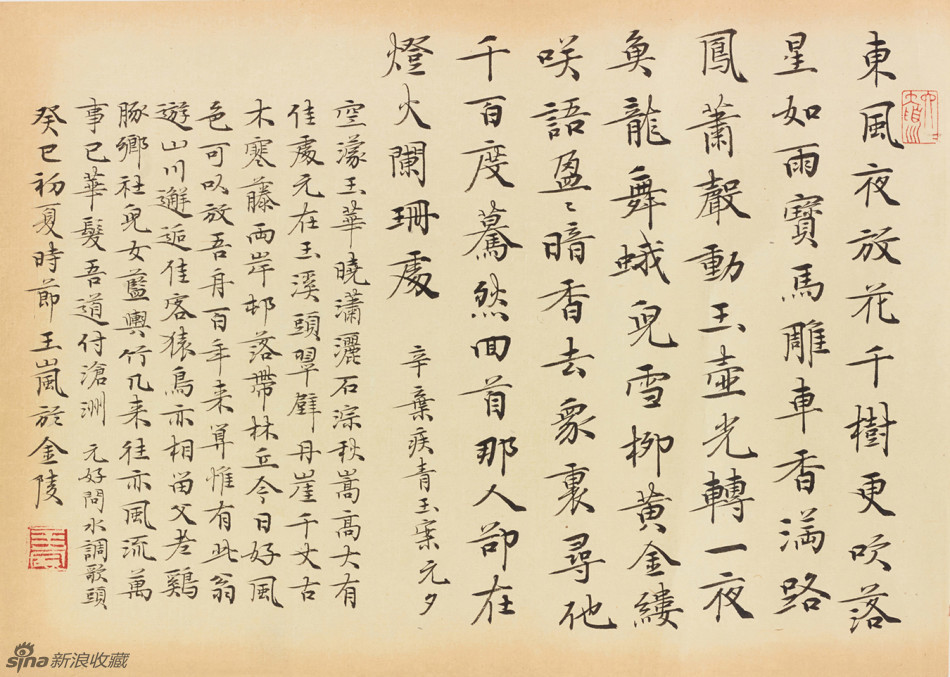 東風夜放花千樹更吹落
星如雨寶馬雕車香滿路
鳳蕭聲動玉壺光轉一夜
魚龍舞蛾兒雪柳黃金縷
咲語盈〻暗香去衆裏尋他
千百度驀然回首那人卻在
燈火闌珊處 辛棄疾青玉案元夕
空濛玉華曉瀟灑石淙秋嵩高大有
佳處元在玉溪頭翠壁丹崖千丈古
木寒藤兩岸邨落帶林丘今日好風
色可以放吾舟百年来算惟有此翁
遊山川邂逅佳客猿鳥亦相留父老鷄
豚鄉社兒女籃輿竹几来往亦風流萬
事已華髮吾道付滄洲 元好問水調歌頭
癸巳初夏時節王嵐於金陵
sina新浪收藏